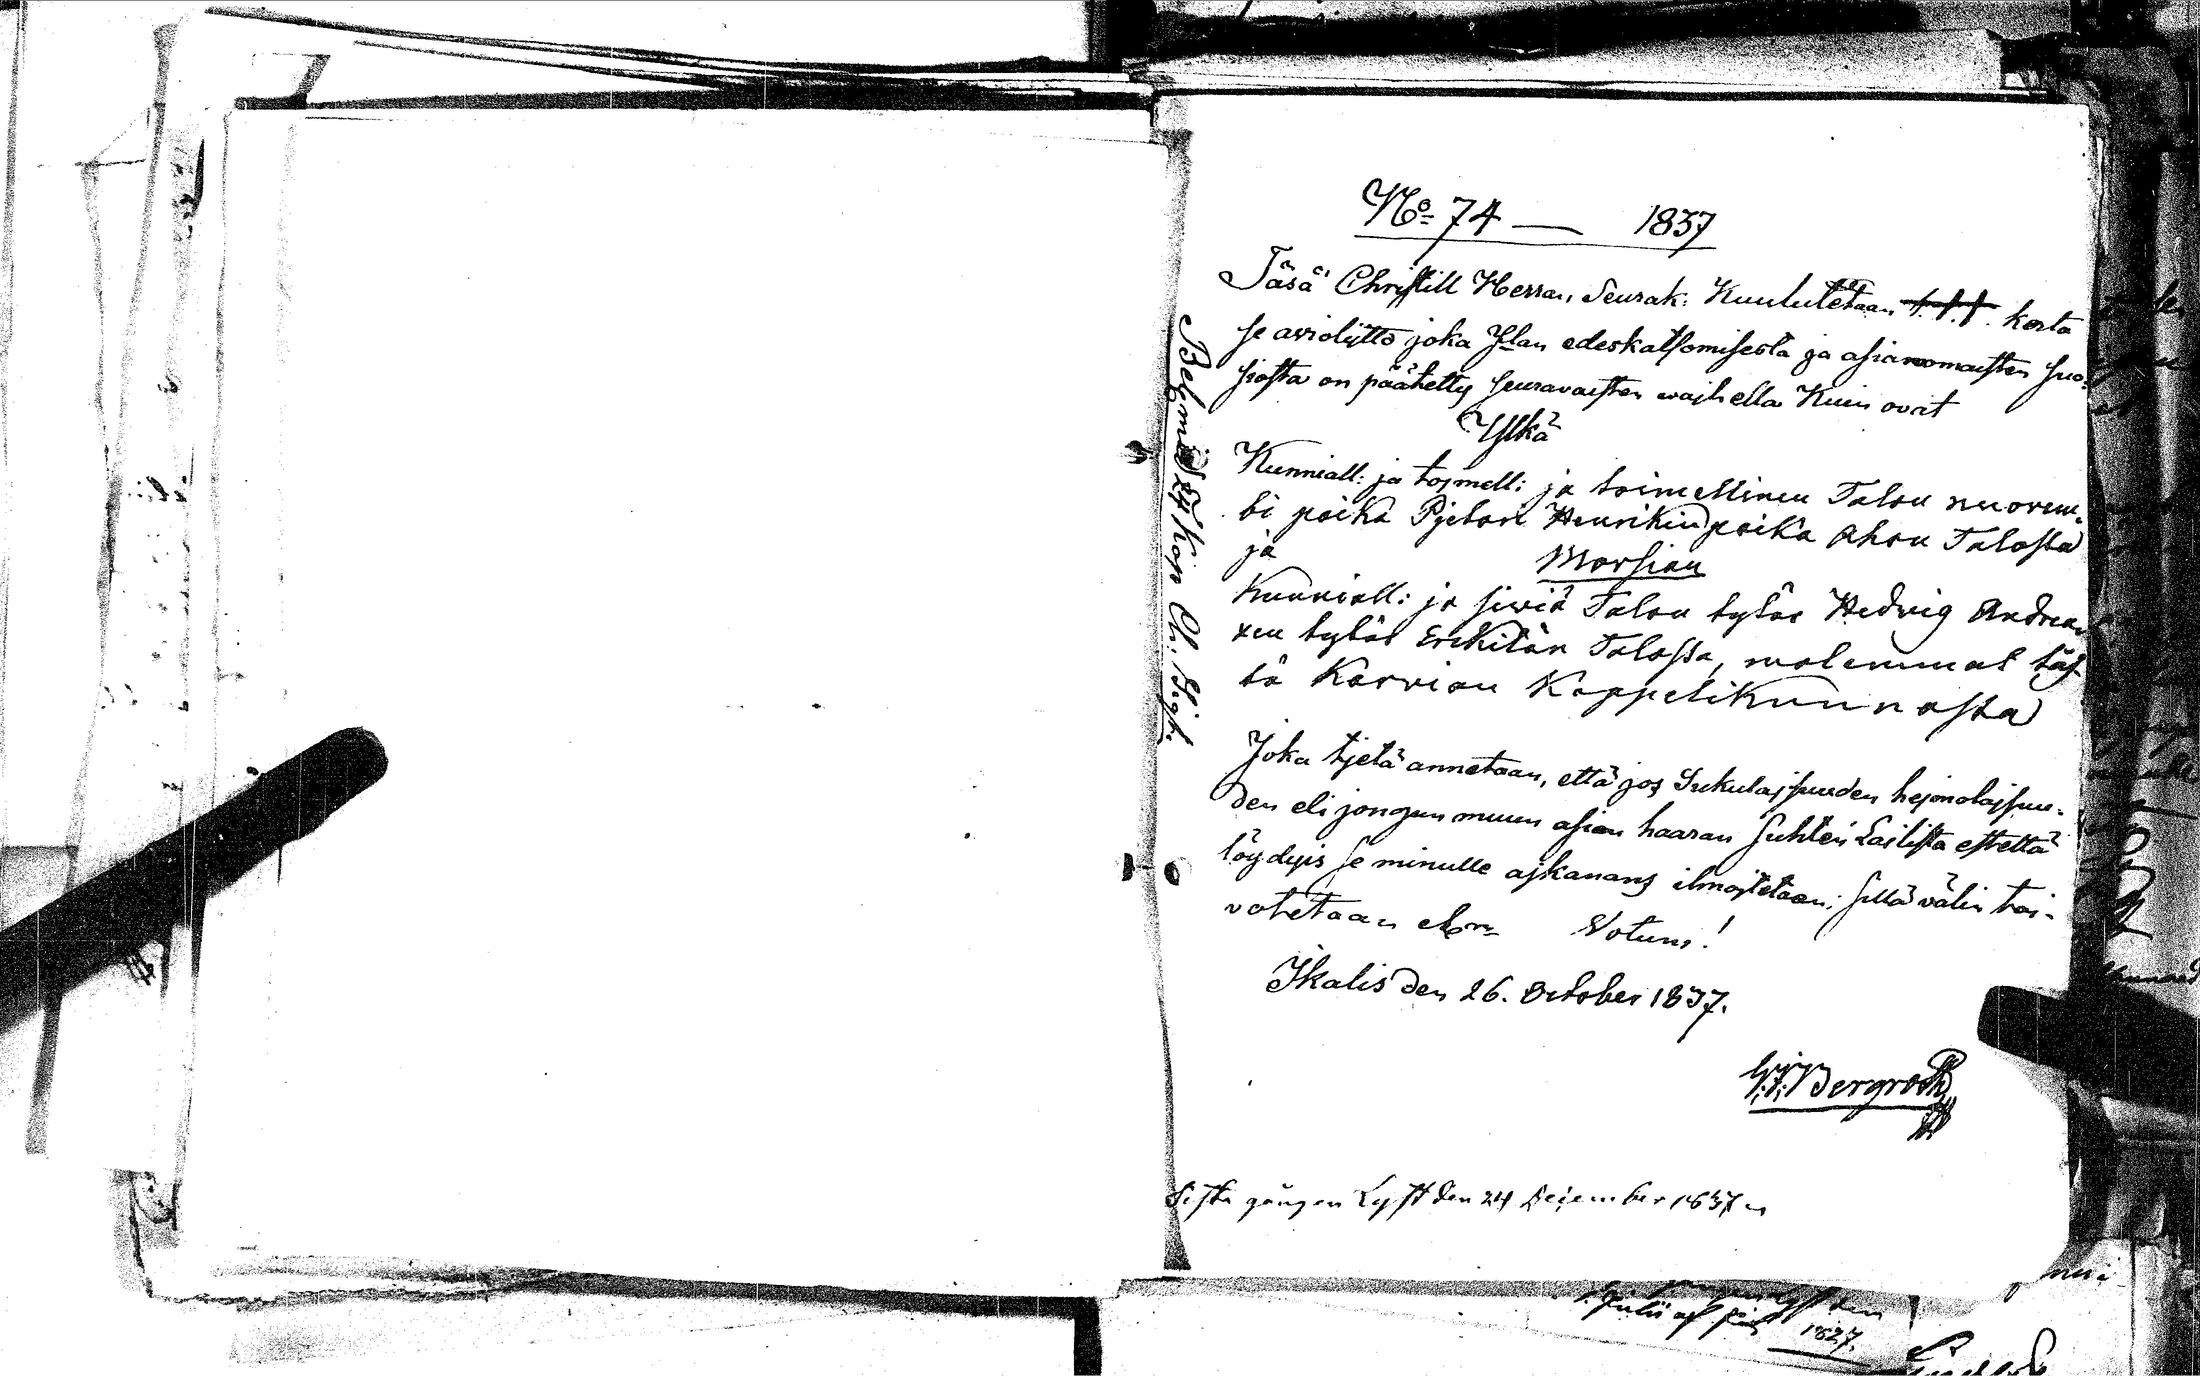 No 74 — 1837
Täsä Christill Herran, Seurak: Kuulutetaan korta
se avioliitto joka Ylan edeskatsomisesta ja asianomaisten suo-
siosta on päätetty seuravaisten wajhella Kuin ovat
Ylkä
Kunniall: ja tojmell: ja toimellinen Talon nuorem-
bi poika Pjetari Henrikinpoika Ahon Talosta
ja Morsian
Kunniall: ja siwiä Talon tytär Hedvig Andrea
xen tytär Erkilän Talosta, molemmat täs-
tä Karvian Kappelikunnasta
Joka tjetä annetaan, että jos Sukulajsuuden hejmolajsuu-
den eli jongun muun asian haaran suhten Lailista estettä
löydyis se minulle ajkanans ilmojtetaan; sillä välin toi-
votetaan Votum!
Ikalis den 26. October 1837.
Bergroth
Sista gången Lyst den 24 December 1837
24 Kop
1827.